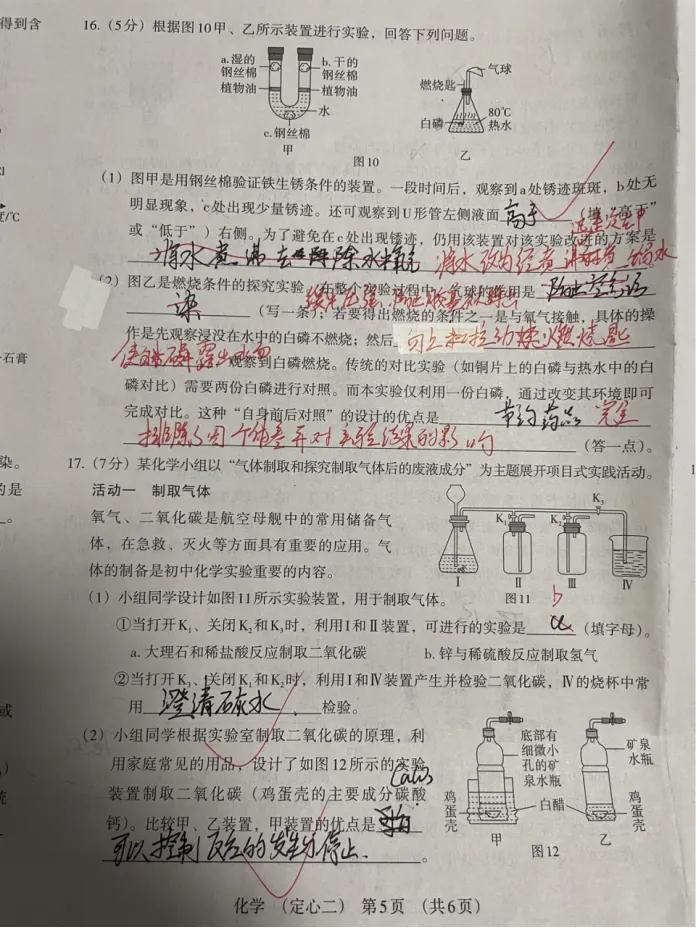 得到含
16.（5分）根据图10甲、乙所示装置进行实验，回答下列问题。
a.湿的
钢丝棉
b.干的
钢丝棉
植物油
植物油
水
c.钢丝棉
甲
气球
燃烧匙
白磷
80℃
热水
乙
图10
（1）图甲是用钢丝棉验证铁生锈条件的装置。一段时间后，观察到a处锈迹斑斑，b处无
明显现象，c处出现少量锈迹。还可观察到U形管左侧液面 高于 （填“高于”
度/℃
或“低于”）右侧。为了避免在c处出现锈迹，仍用该装置对该实验改进的方案是
将水煮沸去除水中氧气
（2）图乙是燃烧条件的探究实验。在整个实验过程中，气球的作用是 防止空气污
染 （写一条）；若要得出燃烧的条件之一是与氧气接触，具体的操
作是先观察浸没在水中的白磷不燃烧；然后 向上
石膏
使白磷露出水面 观察到白磷燃烧。传统的对比实验（如铜片上的白磷与热水中的白
磷对比）需要两份白磷进行对照。而本实验仅利用一份白磷，通过改变其环境即可
完成对比。这种“自身前后对照”的设计的优点是 节约药品 完全
排除了因个体差异对实验结果的影响 （答一点）。
染。
17.（7分）某化学小组以“气体制取和探究制取气体后的废液成分”为主题展开项目式实践活动。
的是
活动一 制取气体
氧气、二氧化碳是航空母舰中的常用储备气
体，在急救、灭火等方面具有重要的应用。气
体的制备是初中化学实验重要的内容。
K₁
K₂
K₃
Ⅰ
Ⅱ
Ⅲ
Ⅳ
图11
（1）小组同学设计如图11所示实验装置，用于制取气体。
b
①当打开K₁、关闭K₂和K₃时，利用Ⅰ和Ⅱ装置，可进行的实验是 a （填字母）。
a. 大理石和稀盐酸反应制取二氧化碳
b. 锌与稀硫酸反应制取氢气
②当打开K₃、关闭K₁和K₂时，利用Ⅰ和Ⅳ装置产生并检验二氧化碳，Ⅳ的烧杯中常
或
用 澄清石灰水 检验。
（2）小组同学根据实验室制取二氧化碳的原理，利
用家庭常见的用品，设计了如图12所示的实验
装置制取二氧化碳（鸡蛋壳的主要成分碳酸
钙）。比较甲、乙装置，甲装置的优点是
可以控制反应的发生与停止.。
底部有
细微小
孔的矿
泉水瓶
矿泉
水瓶
鸡
蛋
壳
白醋
鸡
蛋
壳
甲
乙
图12
化学 （定心二） 第5页 （共6页）